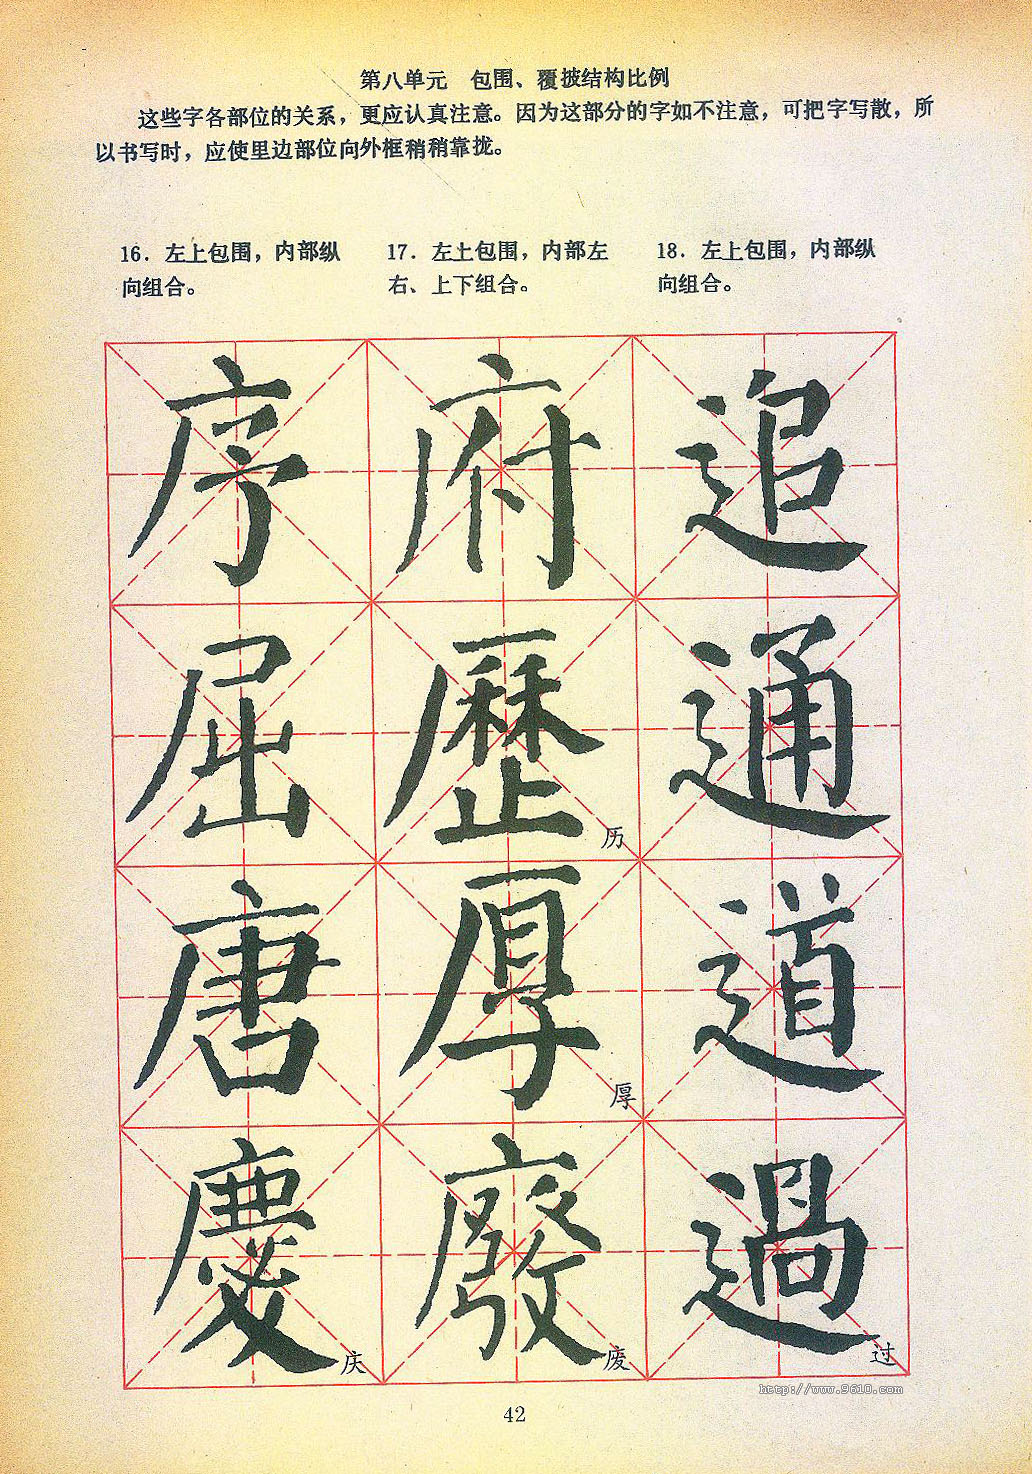 第八单元　包围、覆披结构比例
这些字各部位的关系，更应认真注意。因为这部分的字如不注意，可把字写散，所
以书写时，应使里边部位向外框稍稍靠拢。
16．左上包围，内部纵
向组合。
17．左上包围，内部左
右、上下组合。
18．左上包围，内部纵
向组合。
序 府 追
屈 歷 历 通
唐 厚 厚 道
慶 庆 廢 废 過 过
http://www.9610.com
42